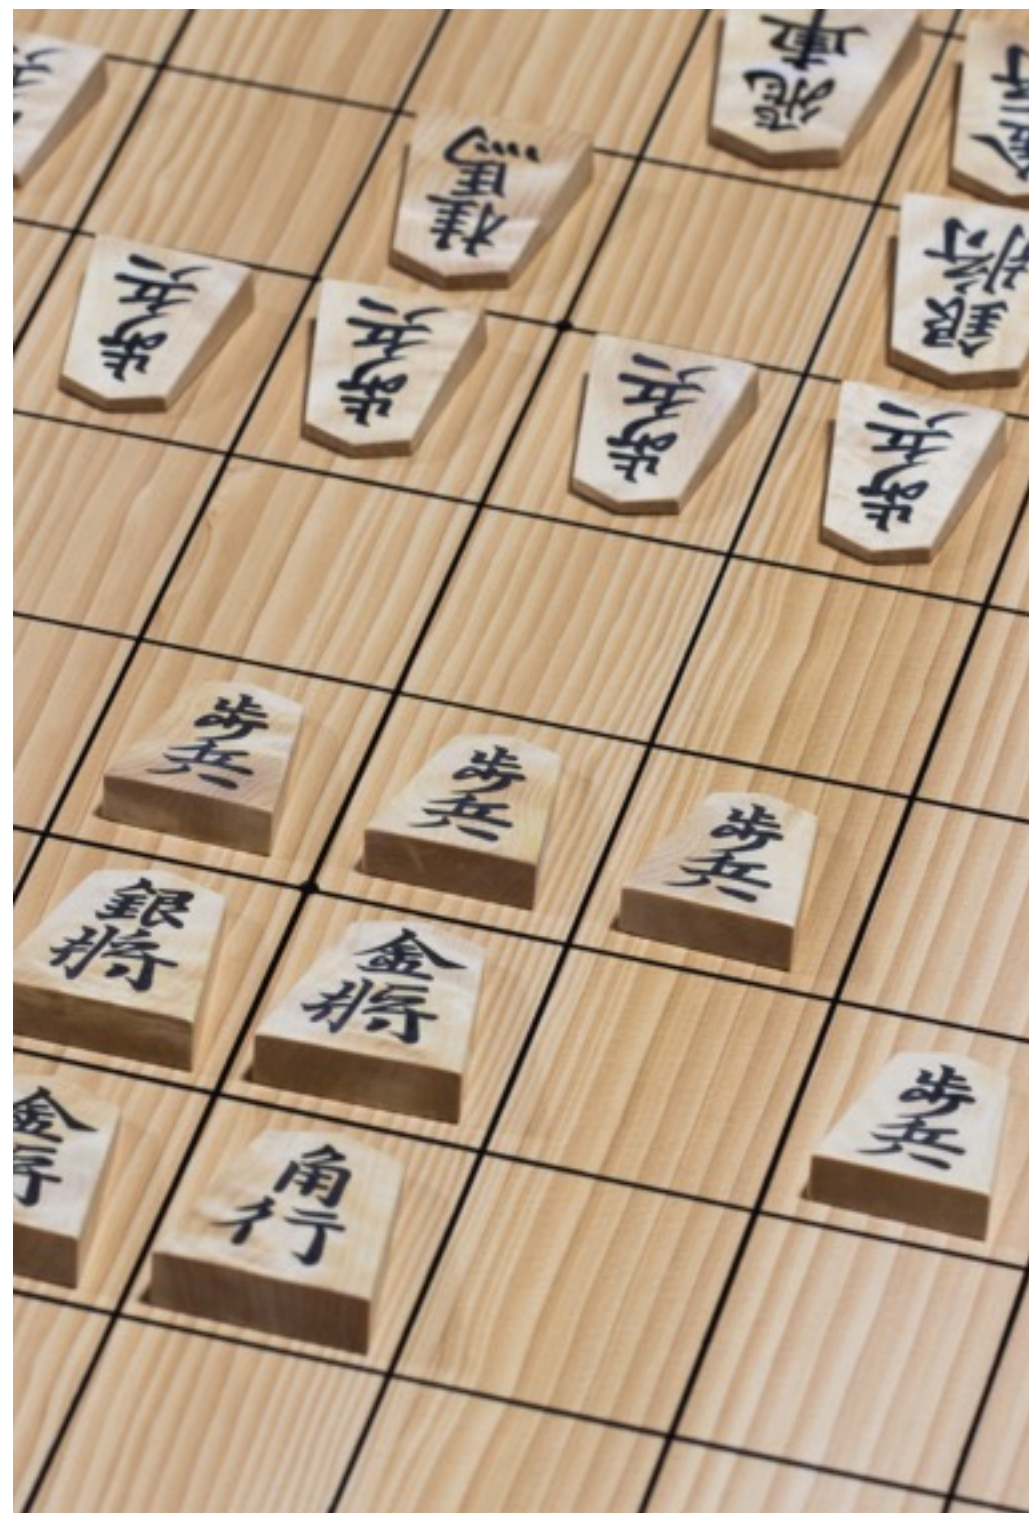 飛車
桂馬
銀将
歩兵
歩兵
歩兵
歩兵
歩兵
歩兵
歩兵
銀将
金将
歩兵
金将
角行